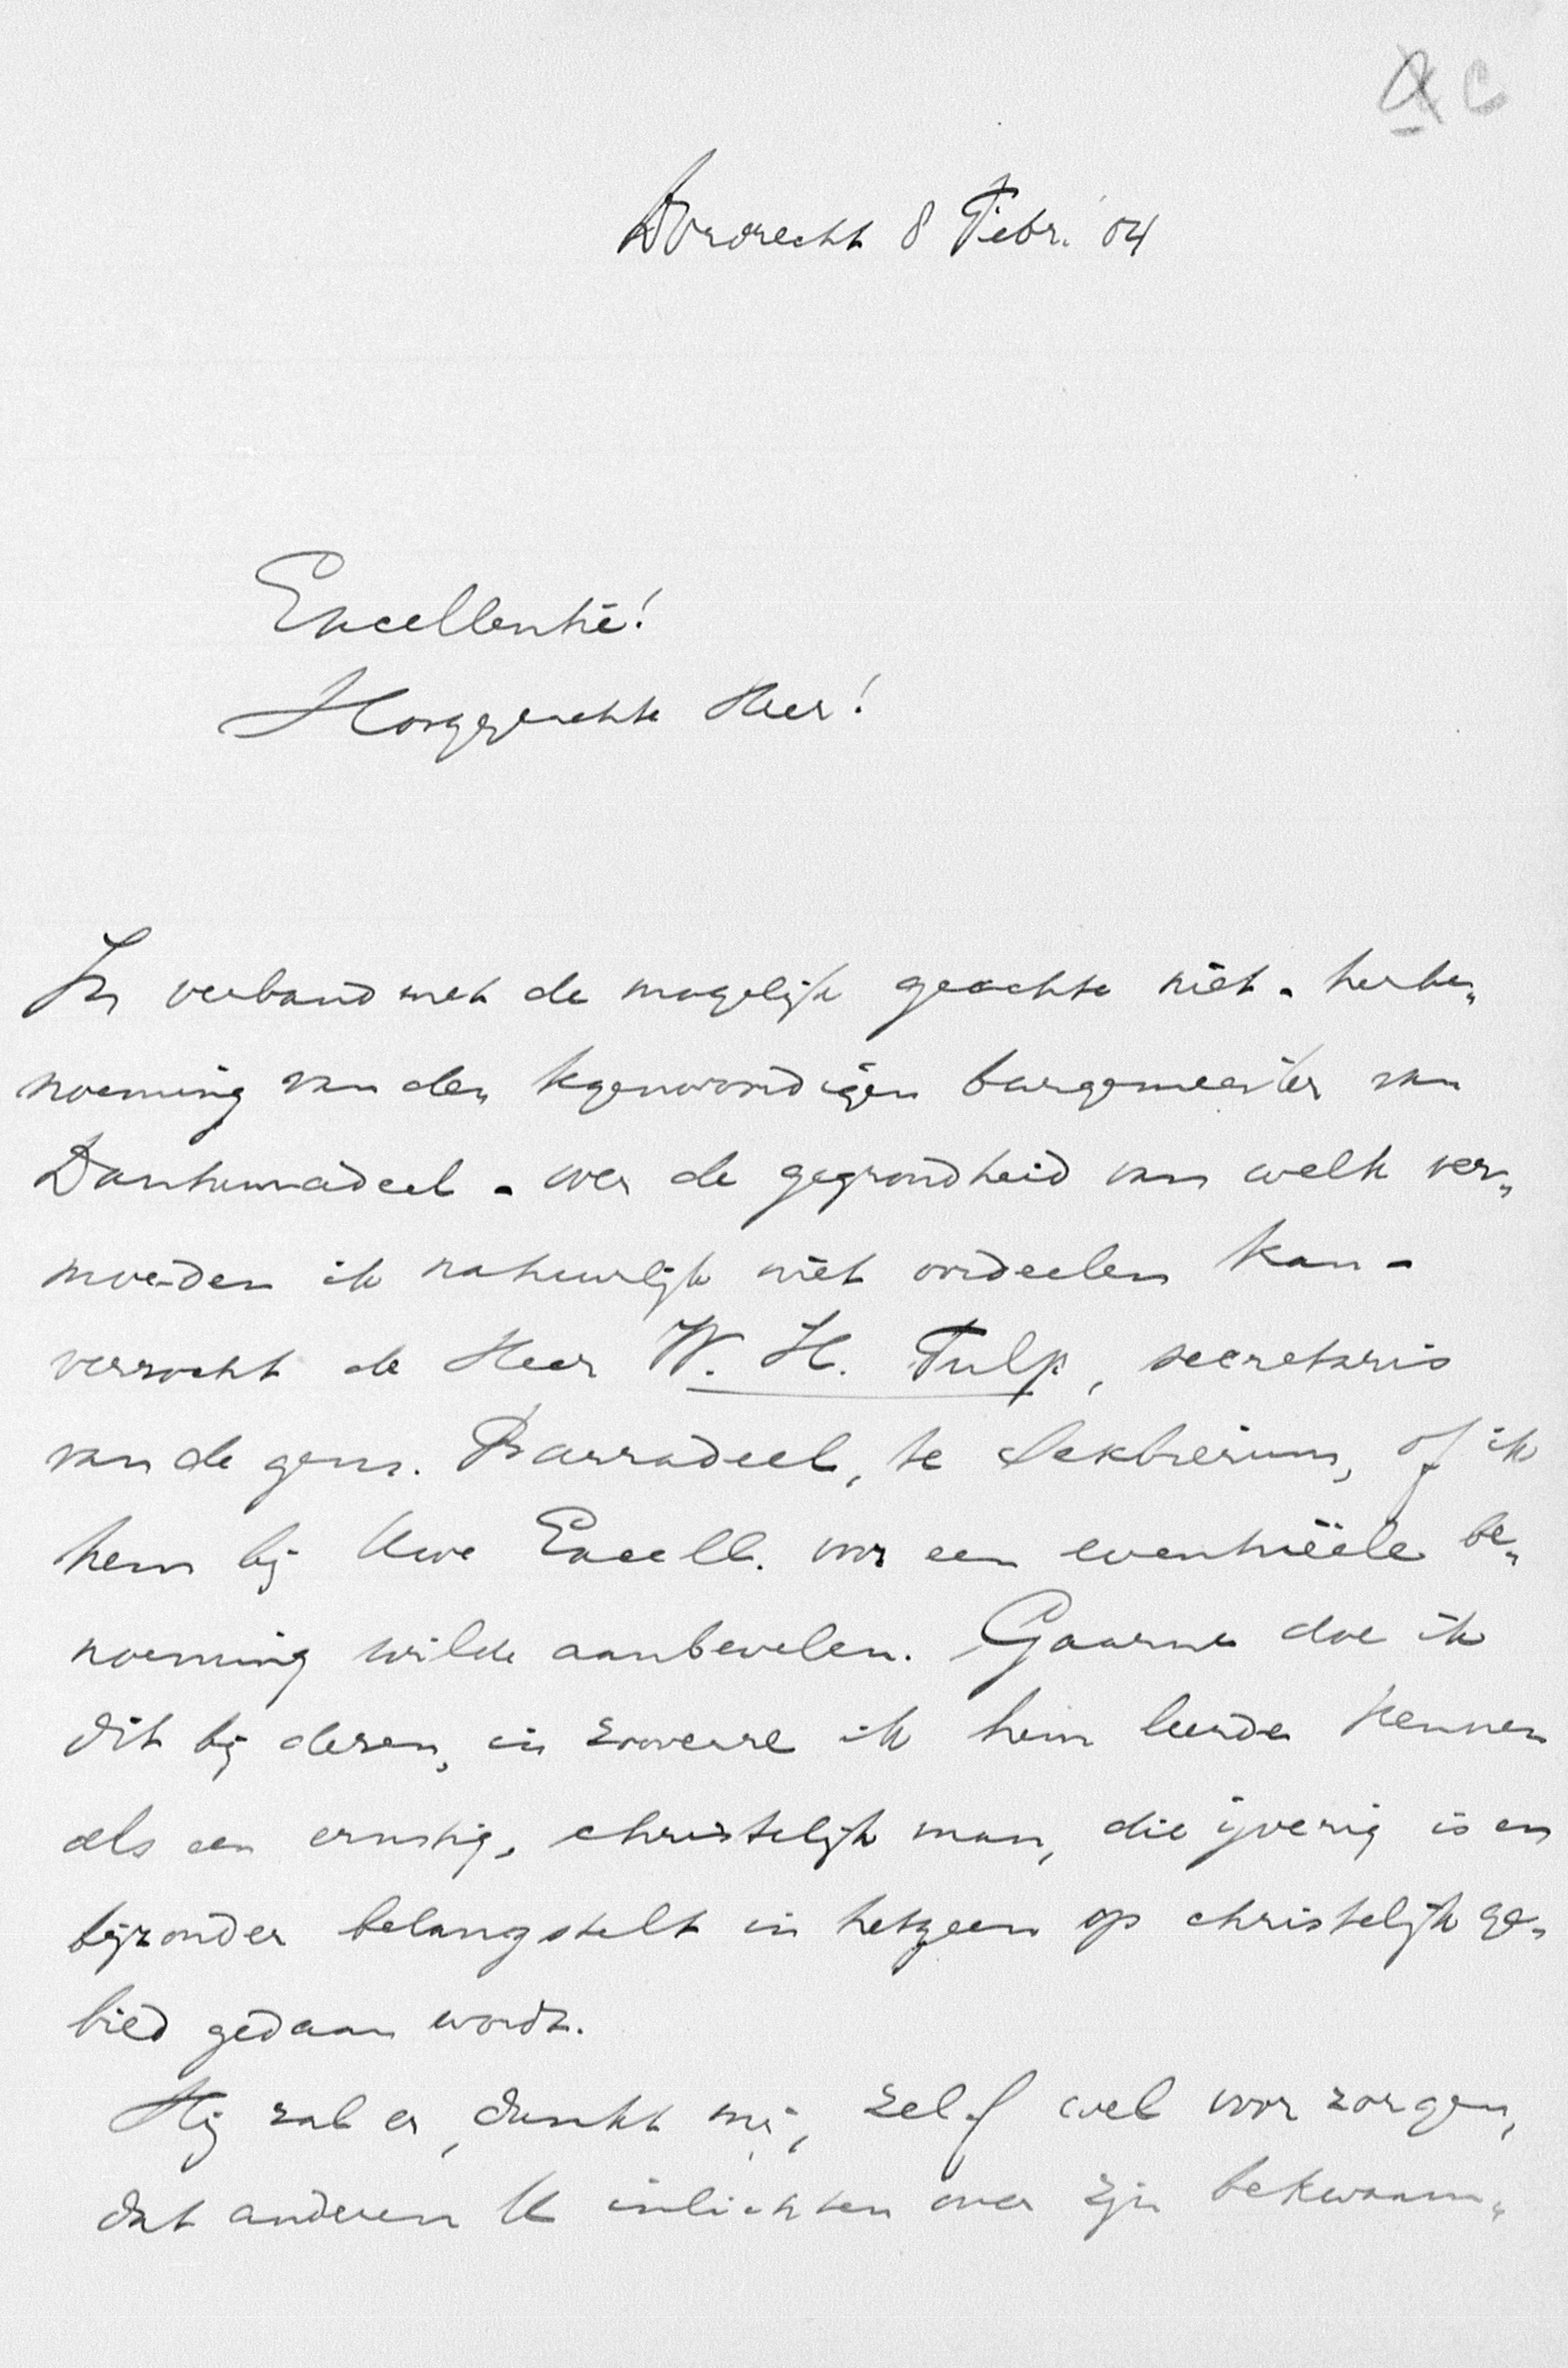 C
Dordrecht 8 Febr. '04
Excellentie!
Hooggeachte Heer!
In verband met de mogelijk geachte niet-herbe„
noeming van den tegenwoordigen burgemeester van
Dantumadeel - over de gegrondheid van welk ver„
moeden ik natuurlijk niet oordeelen kan -
verzocht de Heer W. H. Tulp, secretaris
van de gem. Barradeel, te Sexbierum, of ik
hem bij Uwe Excell. voor een eventuëele be„
noeming wilde aanbevelen. Gaarne doe ik
dit bij dezen, in zooverre ik hem leerde kennen
als een ernstig, christelijk man, die ijverig is en
bijzonder belangstelt in hetgeen op christelijk ge„
bied gedaan wordt.
Hij zal er, dunkt mij, zelf wel voor zorgen,
dat anderen U inlichten over zijn bekwaam„